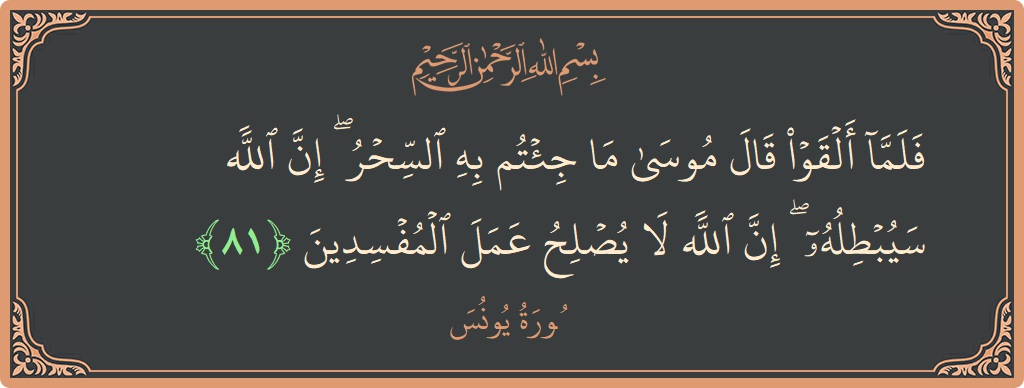 بِسْمِ اللهِ الرَّحْمٰنِ الرَّحِيْمِ
فَلَمَّآ أَلۡقَوۡاْ قَالَ مُوسَىٰ مَا جِئۡتُم بِهِ ٱلسِّحۡرُۖ إِنَّ ٱللَّهَ
سَيُبۡطِلُهُۥٓۖ إِنَّ ٱللَّهَ لَا يُصۡلِحُ عَمَلَ ٱلۡمُفۡسِدِينَ ﴿٨١﴾
سُورَةُ يُونُسَ